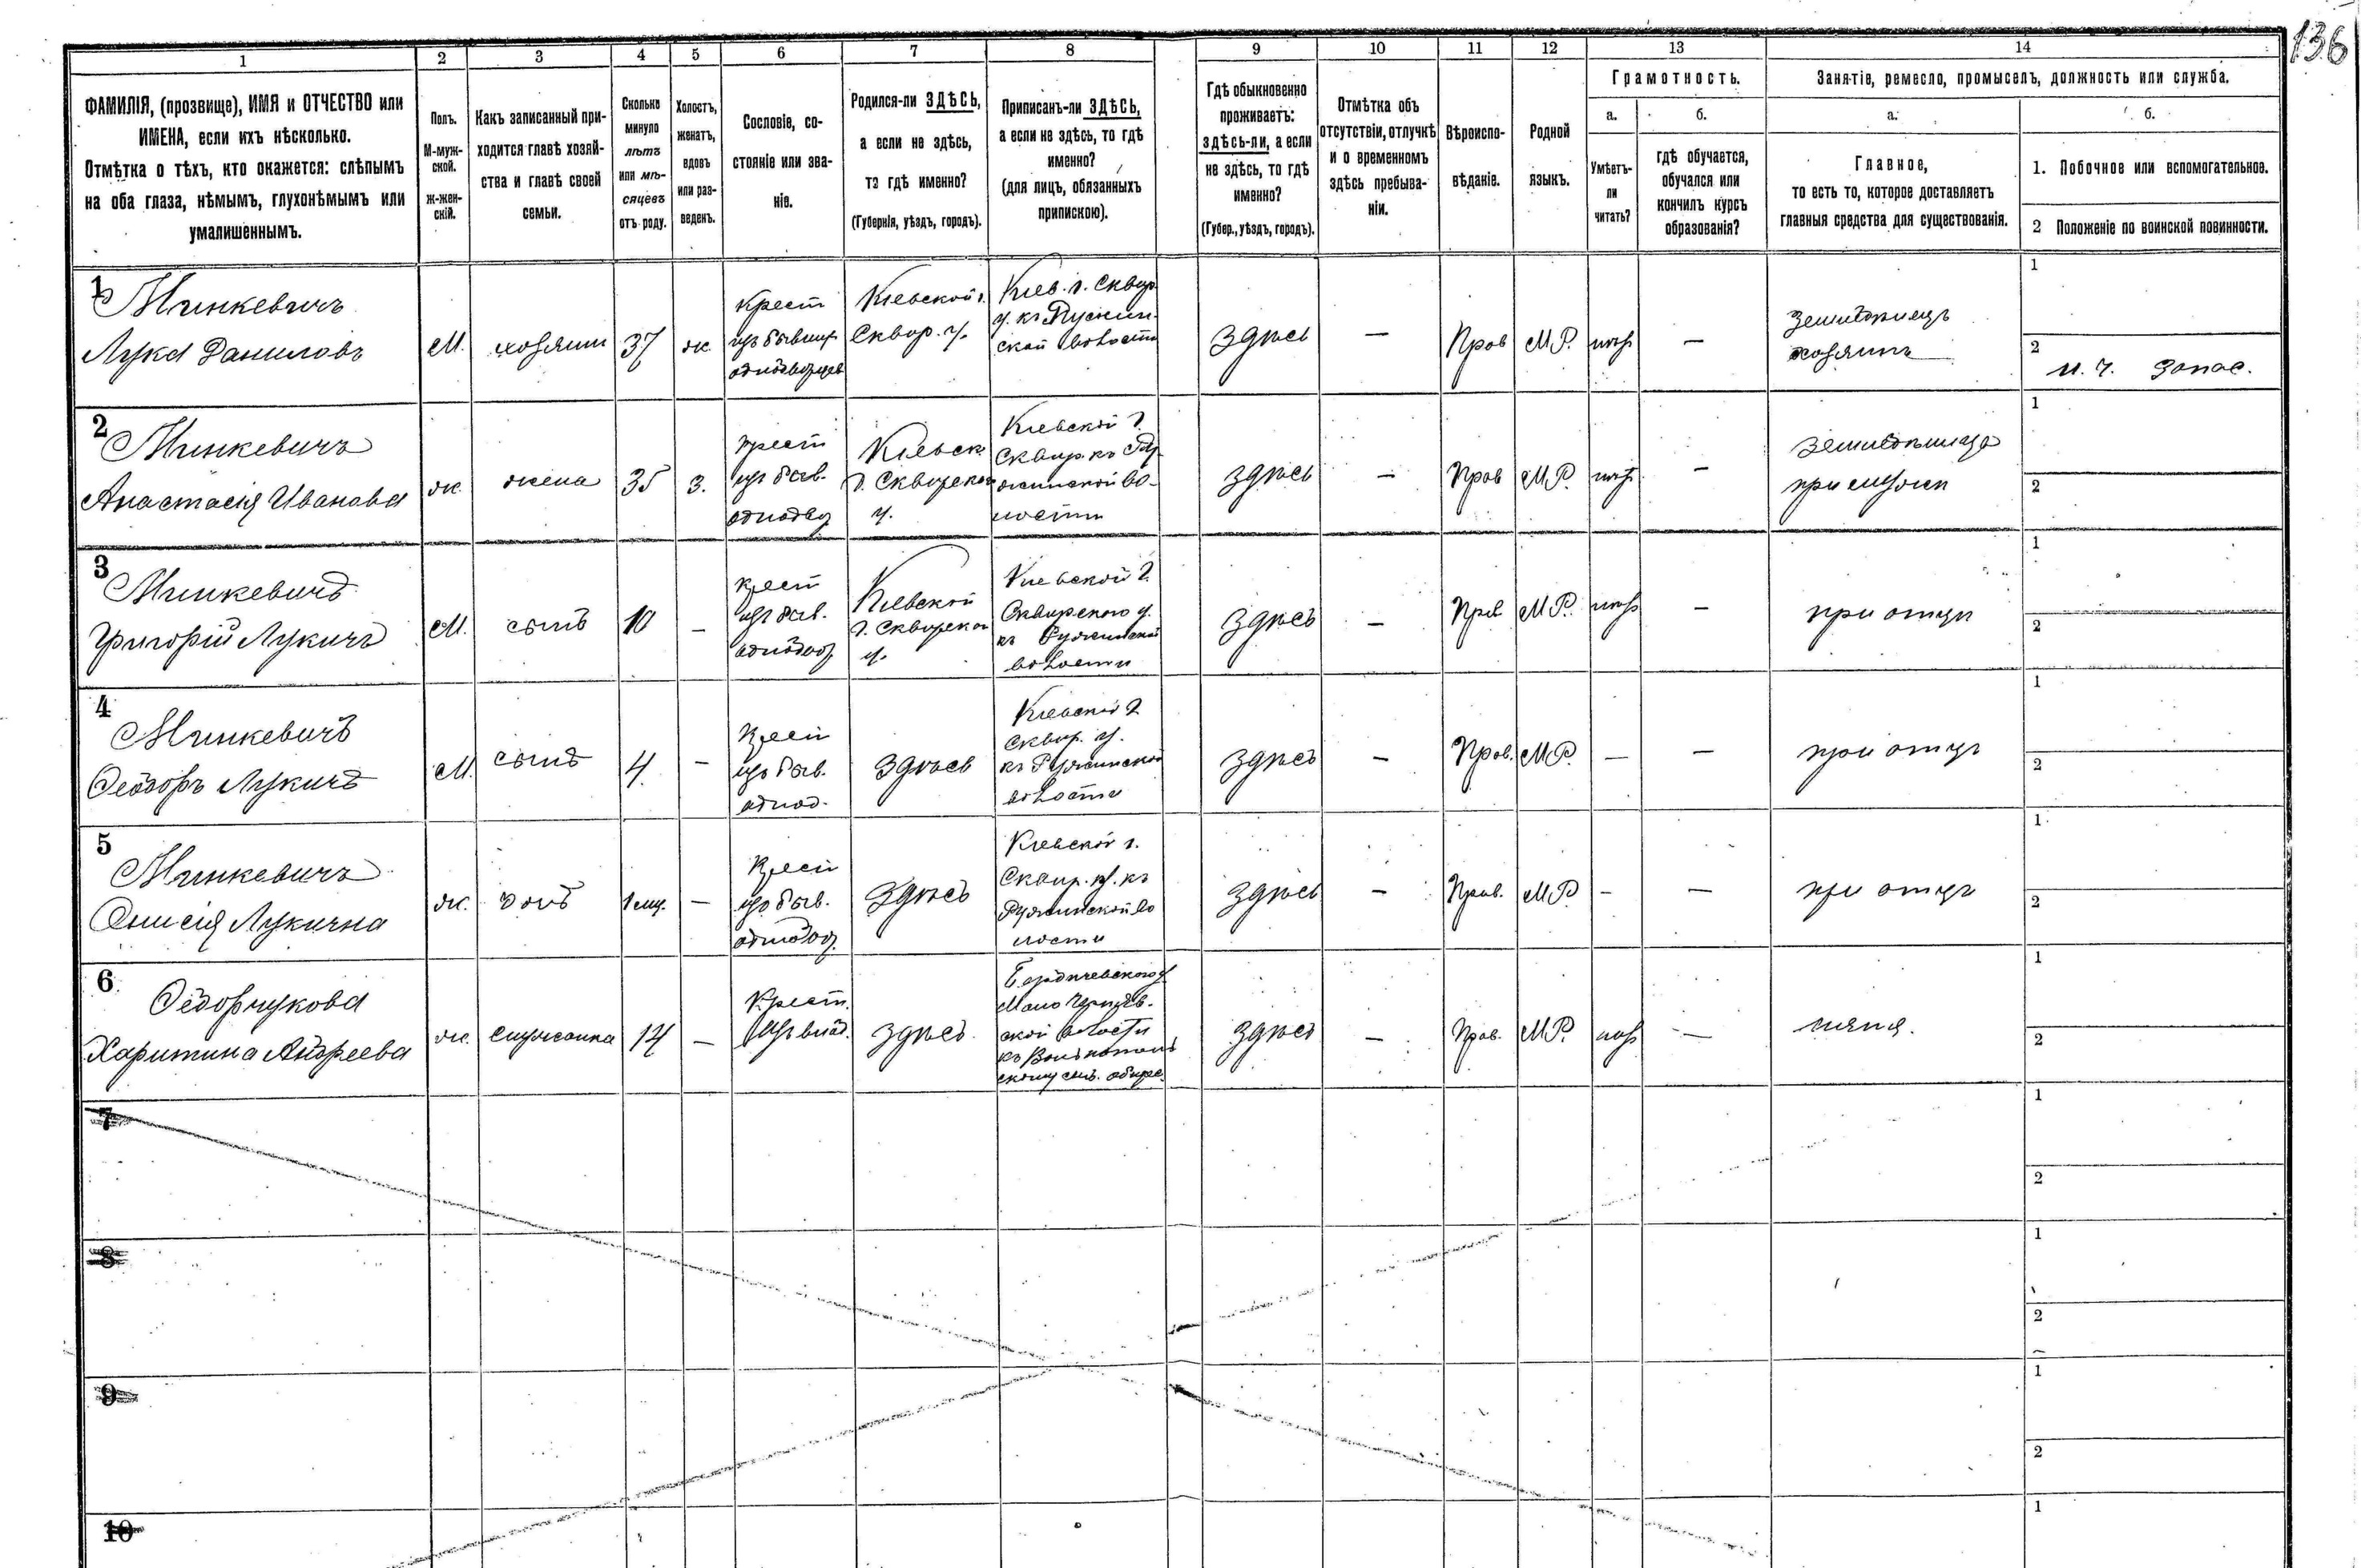 136
1 2 3 4 5 6 7 8 9 10 11 12 13 14
ФАМИЛІЯ, (прозвище), ИМЯ и ОТЧЕСТВО или
ИМЕНА, если ихъ нѣсколько.
Отмѣтка о тѣхъ, кто окажется: слѣпымъ
на оба глаза, нѣмымъ, глухонѣмымъ или
умалишеннымъ.
Полъ.
М-муж-
ской.
ж-жен-
скій.
Какъ записанный при-
ходится главѣ хозяй-
ства и главѣ своей
семьи.
Сколько
минуло
лѣтъ
или мѣ-
сяцевъ
отъ роду.
Холостъ,
женатъ,
вдовъ
или раз-
веденъ.
Сословіе, со-
стояніе или зва-
ніе.
Родился-ли ЗДѢСЬ,
а если не здѣсь,
то гдѣ именно?
(Губернія, уѣздъ, городъ).
Приписанъ-ли ЗДѢСЬ,
а если не здѣсь, то гдѣ
именно?
(для лицъ, обязанныхъ
припискою).
Гдѣ обыкновенно
проживаетъ:
здѣсь-ли, а если
не здѣсь, то гдѣ
именно?
(Губер., уѣздъ, городъ).
Отмѣтка объ
отсутствіи, отлучкѣ
и о временномъ
здѣсь пребыва-
ніи.
Вѣроиспо-
вѣданіе.
Родной
языкъ.
Грамотность.
а.
Умѣетъ-
ли
читать?
б.
гдѣ обучается,
обучался или
кончилъ курсъ
образованія?
Занятіе, ремесло, промыселъ, должность или служба.
а.
Главное,
то есть то, которое доставляетъ
главныя средства для существованія.
б.
1. Побочное или вспомогательное.
2 Положеніе по воинской повинности.
1
Минкевичъ
Лука Даниловъ
М.
хозяин
37
ж.
крест
изъ бывших
однодворцев
Кіевской г.
Сквир. у.
Кіев. г. Сквир
у. къ Ружин-
ской волости
здѣсь
—
Прав
М.Р.
—
земледѣлецъ
хозяинъ
1
2
запас.
2
Минкевичъ
Анастасія Иванова
ж.
жена
35
з.
крест
изъ быв.
однодво
Кіевск
г. Сквирско
у.
Кіевской г.
Сквир. къ Ру-
жинской во-
лости
здѣсь
—
Прав
М.Р.
—
при мужѣ
1
2
3
Минкевичъ
Григорій Лукичъ
М.
сынъ
10
—
крест
изъ быв.
однодвор
Кіевской
г. Сквирско
у.
Кіевской г.
Сквирского у.
къ Ружинской
волости
здѣсь
—
Прав
М.Р.
—
при отцѣ
1
2
4
Минкевичъ
Ѳеодоръ Лукичъ
М.
сынъ
4
—
Крест
изъ быв.
однод.
здѣсь
Кіевской г.
Сквир. у.
къ Ружинской
волости
здѣсь
—
Прав.
М.Р.
—
—
при отцѣ
1
2
5
Минкевичъ
Онисія Лукична
ж.
дочь
—
Крест
изъ быв.
однодвор
здѣсь
Кіевской г.
Сквир. у. къ
Ружинской во
лости
здѣсь
—
Прав.
М.Р.
—
—
при отцѣ
1
2
6
Ѳедорчукова
Харитина Андреева
ж.
служанка
14
—
Крест.
изъ влад.
здѣсь
Бердичевского у
ской волости
здѣсь
—
Прав.
М.Р.
—
няня.
1
2
7
1
2
8
1
2
9
1
2
10
1